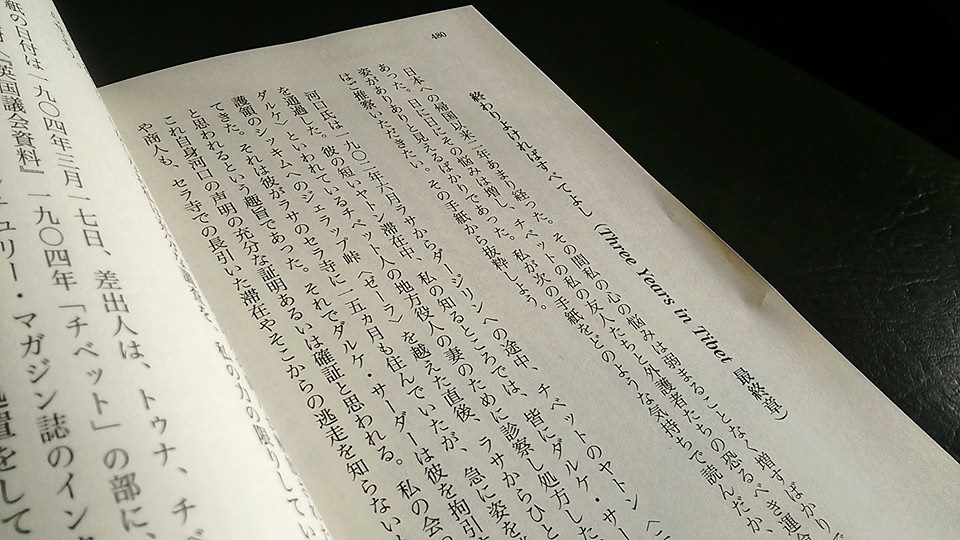 480
終わりよければすべてよし（Three Years in Tibet 最終章）
日本への帰国以来二年あまり経った。その間私の心の悩みは弱まることなく増すばかりで
あった。日に日にその悩みは増し、チベットの私の友人たちと外護者たちの恐るべき運命
姿がありありと見えるばかりであった。私が次の手紙をどのような気持ちで読んだか、
はご推察いただきたい。その手紙から抜粋しよう。
河口氏は一九〇二年六月ラサからダージリンへの途中、チベットのヤトン〈
を通過した。彼の短いヤトン滞在中、私の知るところでは、皆にダルケ・サー
ダルケ〉といわれているチベット人の地方役人の妻のために診察し処方した
護領のシッキムへのジェラップ峠〈ゼーラ〉を越えた直後、ラサからひと
てきた。それは彼がラサのセラ寺に一五カ月も住んでいたが、急に姿を
と思われるという趣旨であった。それでダルケ・サーダーは彼を拘引
これ自身河口の声明の充分な証明あるいは確証と思われる。私の会
や商人も、セラ寺での長引いた滞在やそこからの逃走を知らない
紙の日付は一九〇四年三月一七日、差出人は、トゥナ、チベ
『英国議会資料』一九〇四年「チベット」の部に、
チュリー・マガジン誌のイン
置をして